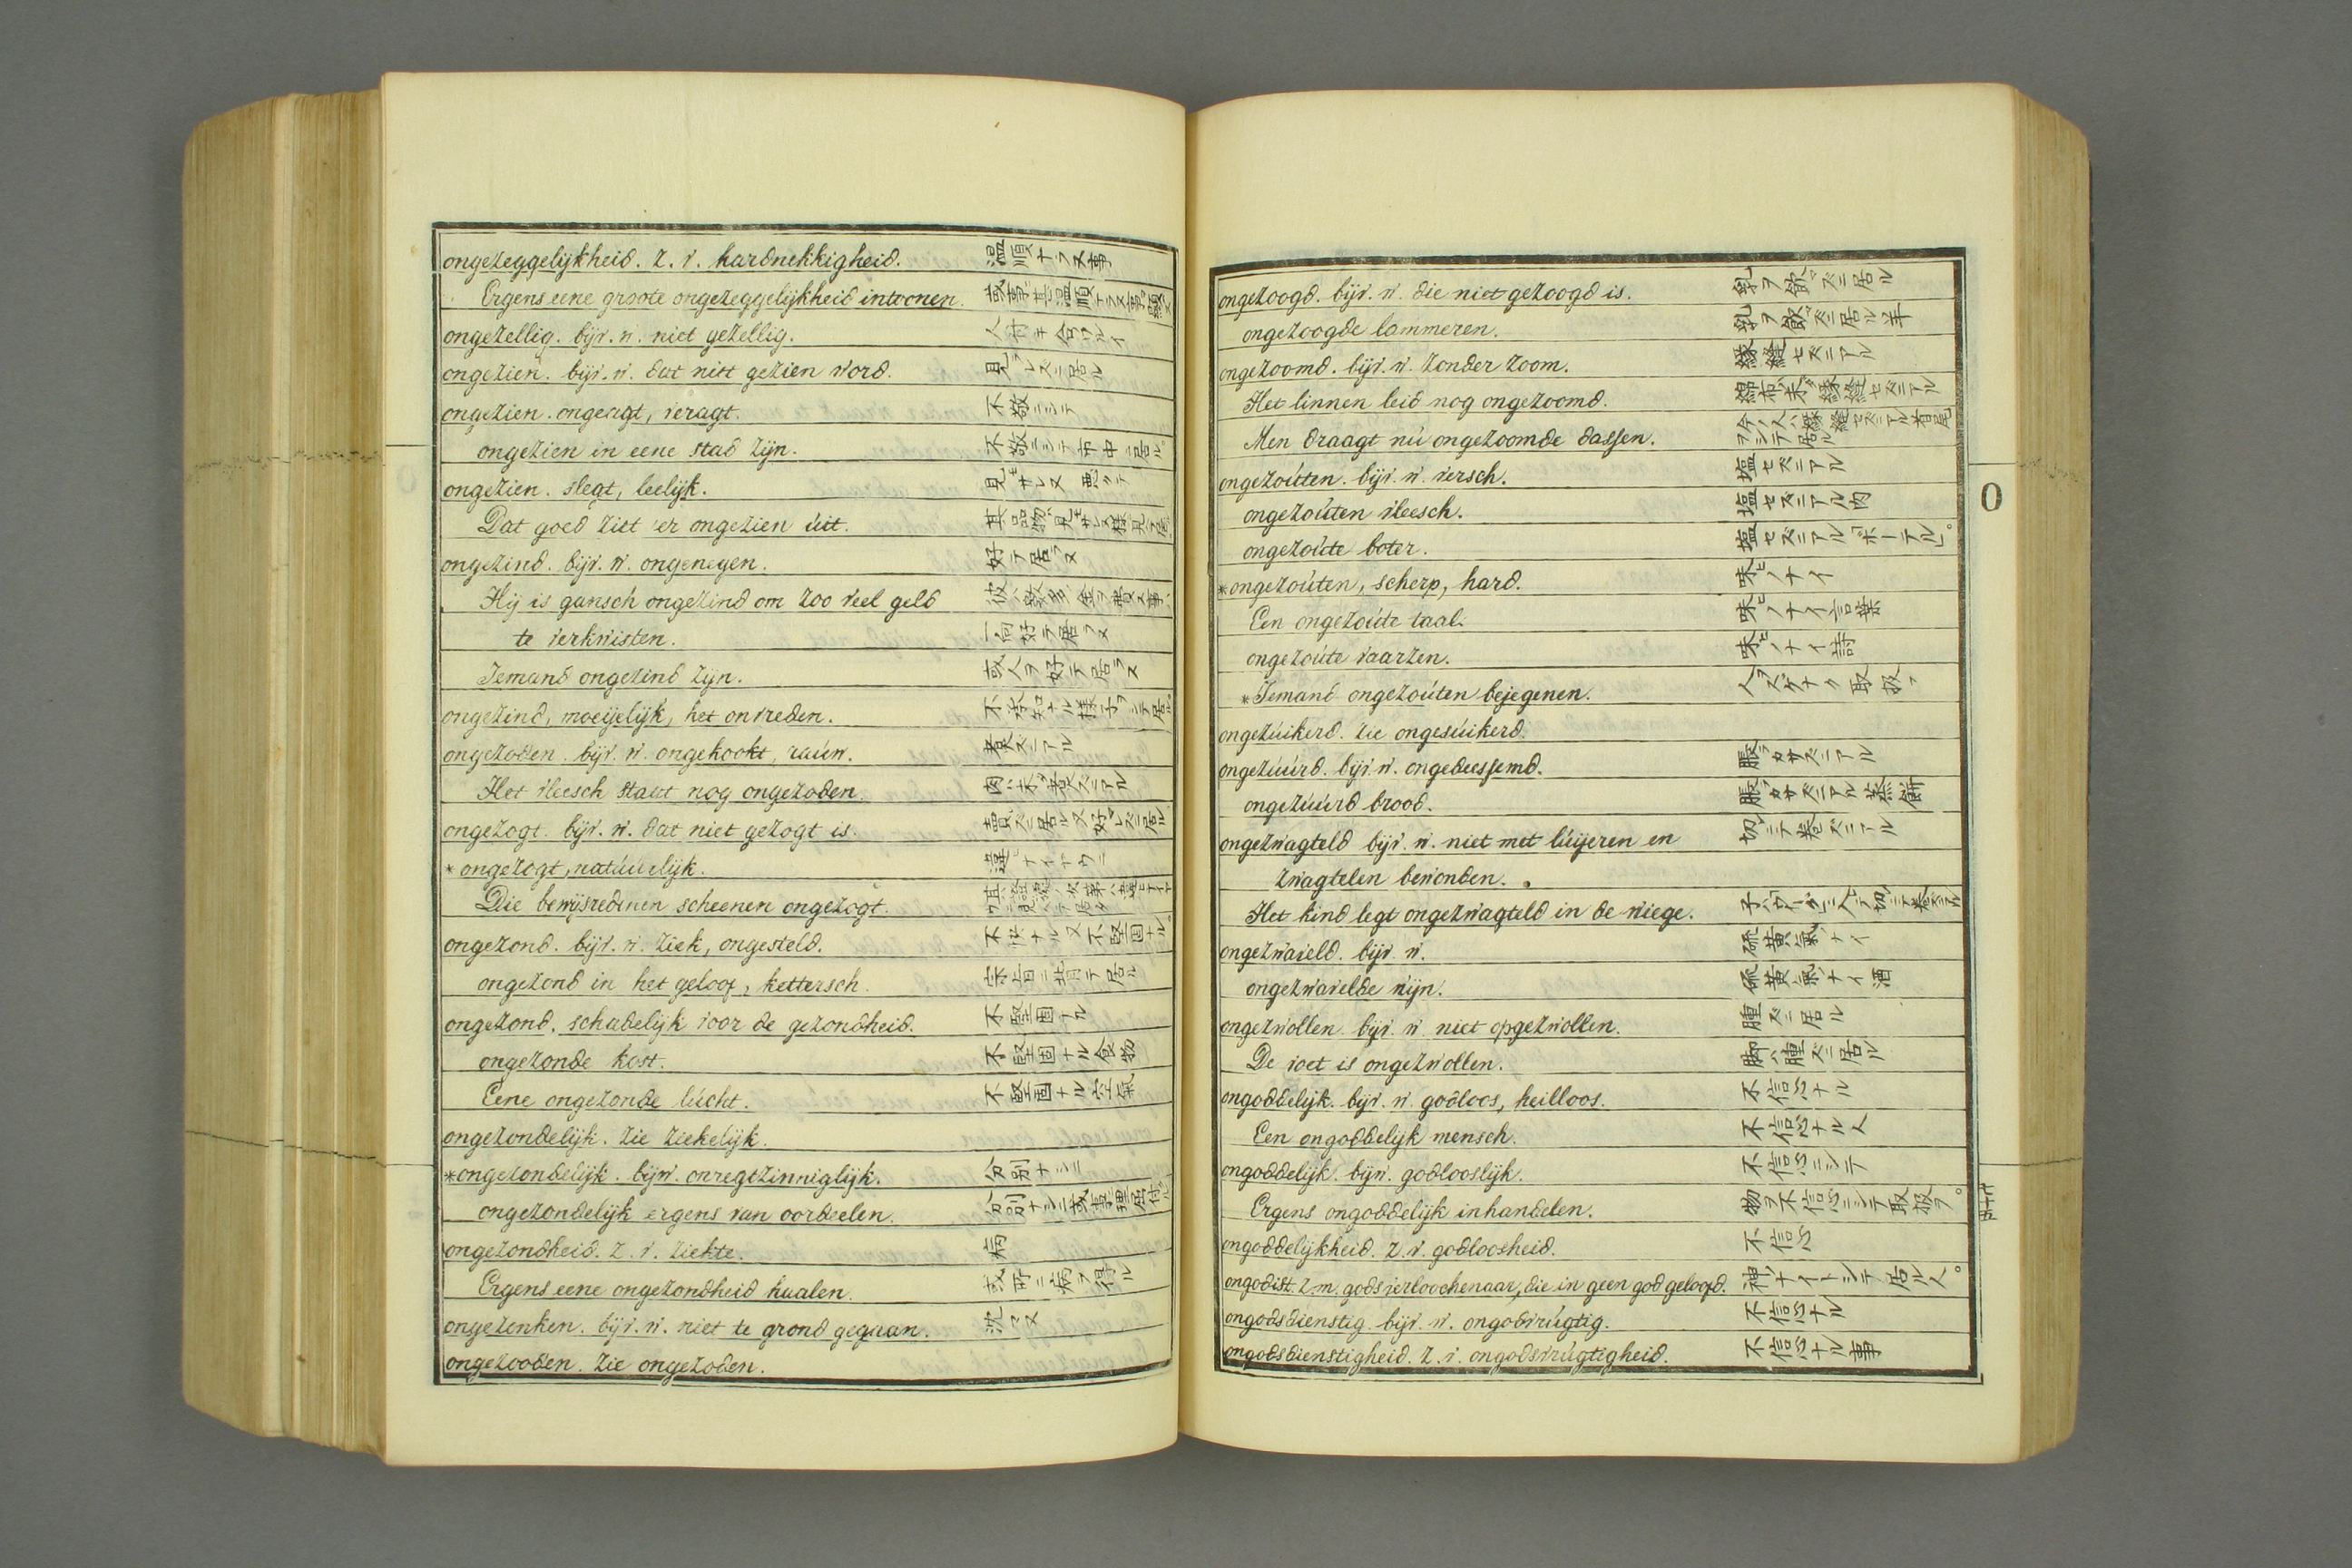 ongezeggelijkheid. z. v. hardnekkigheid. 温順ナラヌ事
Ergens eene groote ongezeggelijkheid intoonen. 或事ニ甚温順ナラヌ事ヲ顕ス
ongezellig. bijv. w. niet gezellig. 人付キ合ノ
ongezien. bijv. w. dat niet gezien word. 見ラレズニ居ル
ongezien. ongeagt, veragt. 不敬ニシテ
ongezien in eene stad zijn. 不敬ニシテ市中ニ居ル
ongezien. slegt, leelijk. 見サレヌ 悪クテ
Dat goed ziet 'er ongezien úit. 其品物ハ見
ongezind. bijv. w. ongenegen. 好テ居ラヌ
Hij is gansch ongezind om zoo veel geld 彼ハ数多ノ金ヲ費ス事ハ
te verkwisten. 一向好テ居ラヌ
Iemand ongezind zijn. 或人ヲ好テ居ラヌ
ongezind, moeijelijk, het onvreden. 不承知ナル様子ヲシテ居ル
ongezoden. bijv. w. ongekookt, raúw. 煮ズニアル
Het vleesch staat nog ongezoden. 肉ハ未ダ煮ズニアル
ongezogt. bijv. w. dat niet gezogt is.
* ongezogt, natúúrlijk. 違ヒナイヤウニ
Die bewijsredenen scheenen ongezogt.
ongezond. bijv. w. ziek, ongesteld. 不快ナル 又 不堅固ナル
ongezond in het geloof, kettersch. 宗旨ニ背テ居ル
ongezond. schadelijk voor de gezondheid. 不堅固ナル
ongezonde kost. 不堅固ナル食物
Eene ongezonde lúcht. 不堅固ナル空氣
ongezondelijk. zie ziekelijk.
*ongezondelijk. bijw. onregtzinniglijk. 分別ナシニ
ongezondelijk ergens van oordeelen. 分別ナシニ或事ヲ
ongezondheid. z. v. ziekte. 病
Ergens eene ongezondheid haalen. 或所ニ病ヲ得ル
ongezonken. bijv. w. niet te grond gegaan. 沈マヌ
ongezooden. zie ongezoden.
ongezoogd. bijv. w. die niet gezoogd is. 乳ヲ飲ズニ居ル
ongezoogde lammeren. 乳ヲ飲ズニ居ル羊
ongezoomd. bijv. w. zonder zoom. 縁縫セズニアル
Het linnen leid nog ongezoomd. 綿布ハ未ダ縁縫セズニアル
Men draagt nú ongezoomde dassen.
ongezoúten. bijv. w. versch. 塩セズニアル
ongezoúten vleesch. 塩セズニアル肉
ongezoúte boter. 塩セズニアル「ボーテル」。
*ongezoúten, scherp, hard. 味ヒノナイ
Een ongezoúte taal. 味ヒノナイ言葉
ongezoúte vaarzen. 味ヒノナイ詩
*Iemand ongezoúten bejegenen. 人ヲスゲナク取扱フ
ongezúikerd. zie ongesúikerd.
ongezúúrd. bijv. w. ongedeessemd. 脹ラカサズニアル
ongezúúrd brood. 脹ラカサズニアル蒸餅
ongezwagteld bijv. w. niet met lúijeren en 切レニテ巻ズニアル
zwagtelen bewonden.
Het kind legt ongezwagteld in de wiege.
ongezwaveld. bijv. w.硫黄氣ノナイ
ongezwavelde wijn. 硫黄氣ノナイ酒
ongezwollen. bijv. w. niet opgezwollen. 腫ズニ居ル
De voet is ongezwollen. 脚ハ腫ズニ居ル
ongoddelijk. bijv. w. godloos, heilloos. 不信心ナル
Een ongoddelijk mensch. 不信心ナル人
ongoddelijk. bijw. godlooslijk. 不信心ニシテ
Ergens ongoddelijk inhandelen. 物ヲ不信心ニシテ取扱フ。
ongoddelijkheid. z. v. godloosheid. 不信心
ongodist. z. m. gods verloochenaar, die in geen god geloofd. 神ハナイトシテ居ル人。
ongodsdienstig. bijv. w. ongodvrúgtig. 不信心ナル
ongodsdienstigheid. z. v. ongodsvrúgtigheid. 不信心ナル事
O